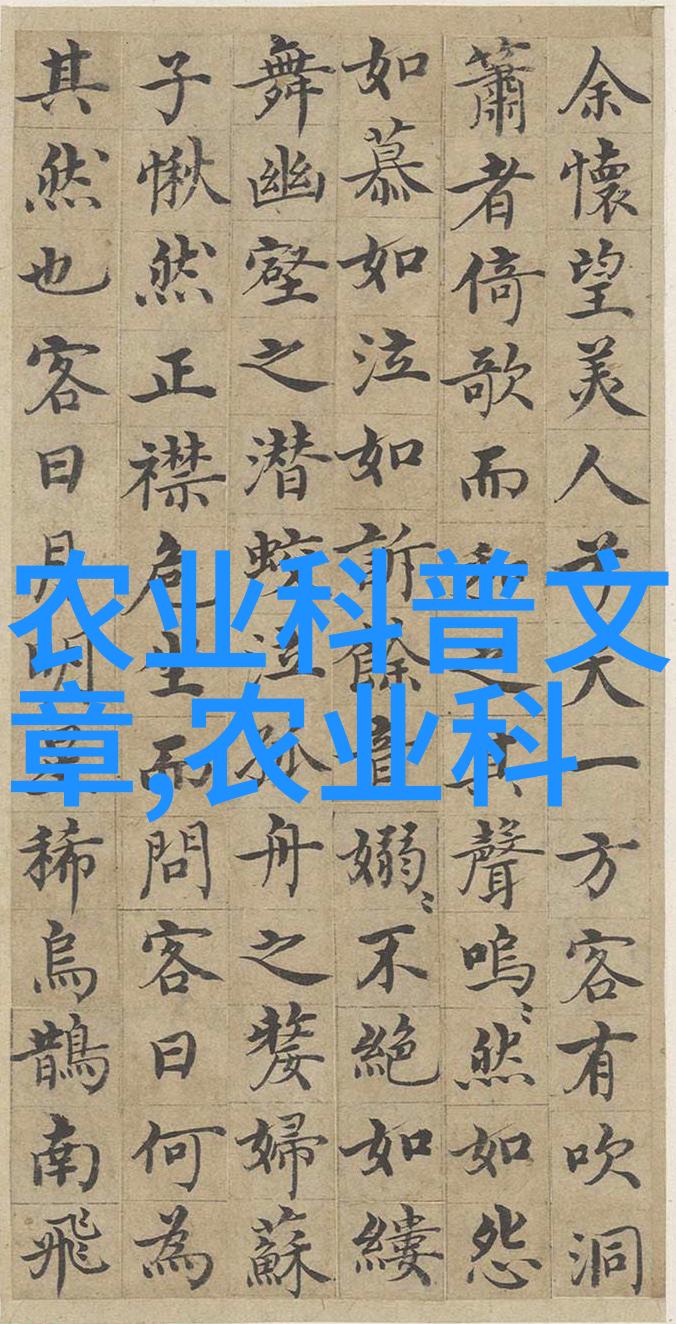 余懷望美人兮天一方客有吹洞
簫者倚歌而和之其聲嗚〻然如怨
如慕如泣如訴餘音嫋〻不絶如縷
舞幽壑之潜蛟泣孤舟之嫠婦蘇
子愀然正襟危坐而問客曰何為
其然也客曰月明星稀烏鵲南飛
农业科普文
章,农业科